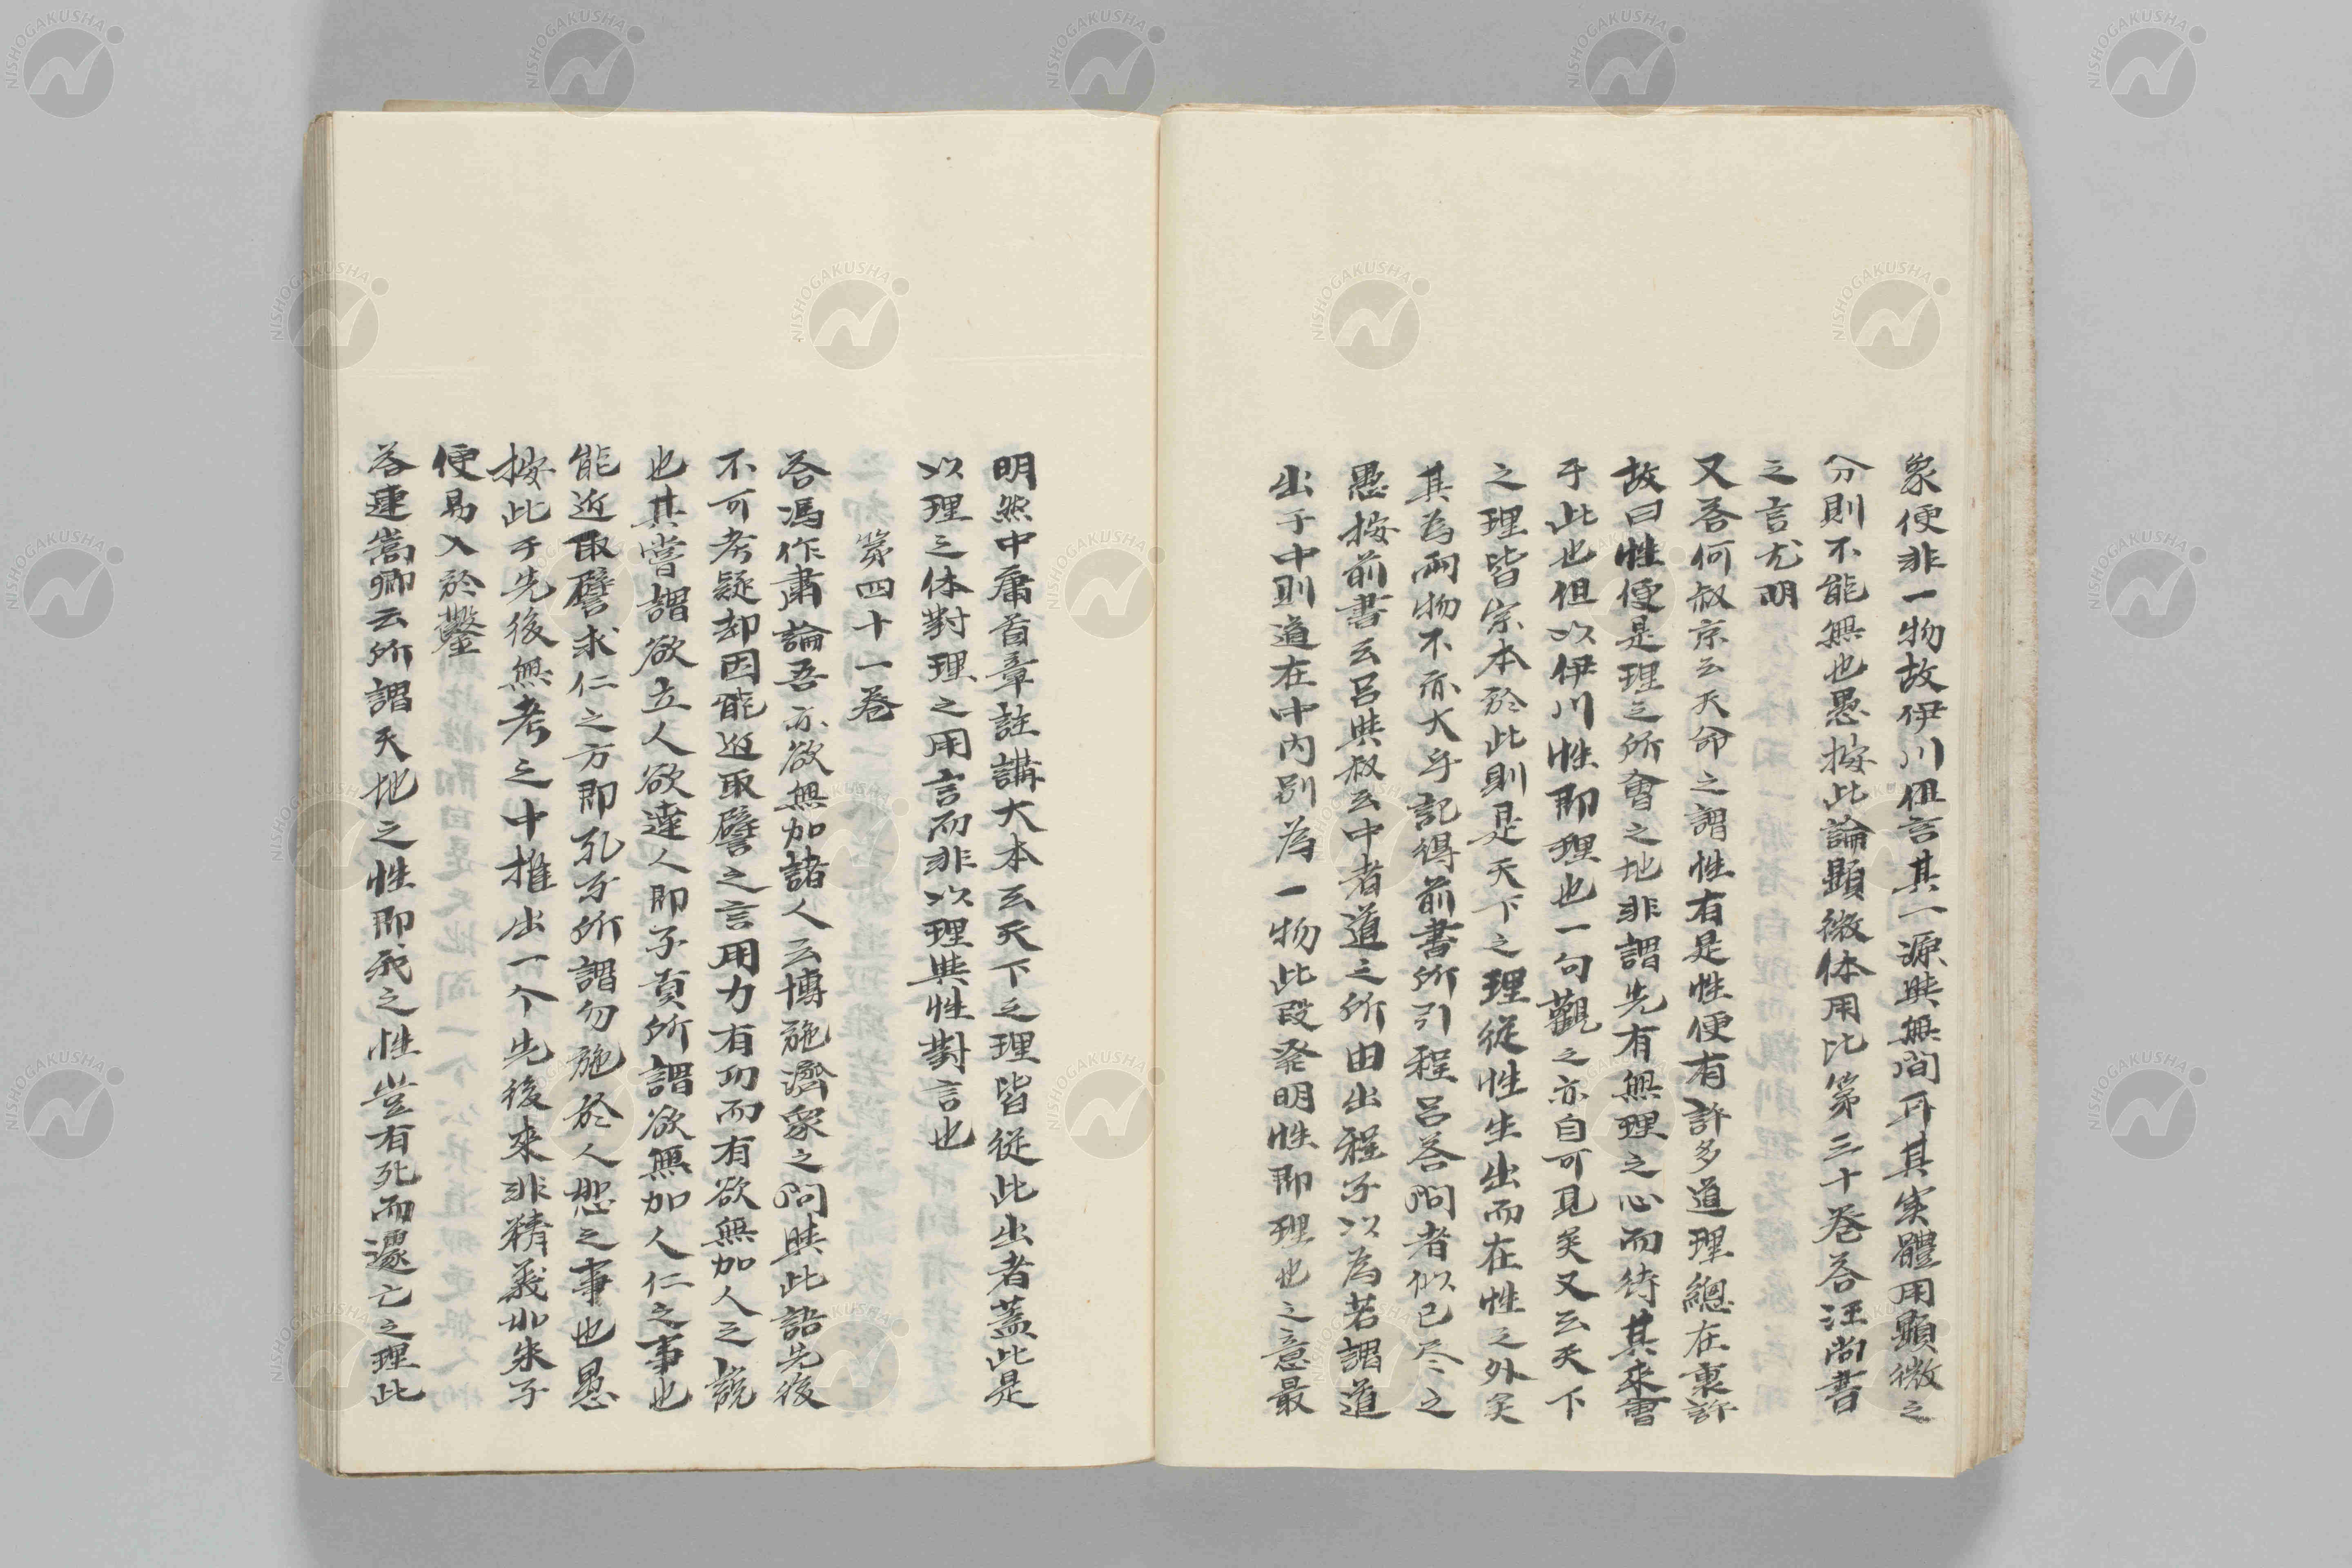 象便非一物故伊川但言其一源與無間耳其実體用顯微之
分則不能無也愚按此論顯微体用比第三十巻答汪尚書
之言尤明
又答何叔京云天命之謂性有是性便有許多道理總在裏許
故曰性便是理之所會之地非謂先有無理之心而待其来會
于此也但以伊川性即理也一句觀之亦自可見矣又云天下
之理皆宗本於此則是天下之理從性生出而在性之外矣
其為兩物不亦大乎記得前書所引程呂答問者似已尽之
愚按前書云呂與叔云中者道之所由出程子以為若謂道
出于中則道在中内別為一物此段発明性即理也之意最
明然中庸首章註講大本云天下之理皆從此出者蓋此是
以理之体對理之用言而非以理與性對言也
第四十一巻
答馮作肅論吾亦欲無加諸人云博施濟衆之問與此語先後
不可考疑却因能近取譬之言用力有功而有欲無加人之說
也其嘗謂欲立人欲達人即子貢所謂欲無加人仁之事也
能近取譬求仁之方即孔子所謂勿施於人恕之事也愚
按此于先後無考之中推出一个先後来非精義如朱子
便易入於鑿
答連嵩卿云所謂天地之性即我之性豈有死而遽亡之理此
NISHOGAKUSHA